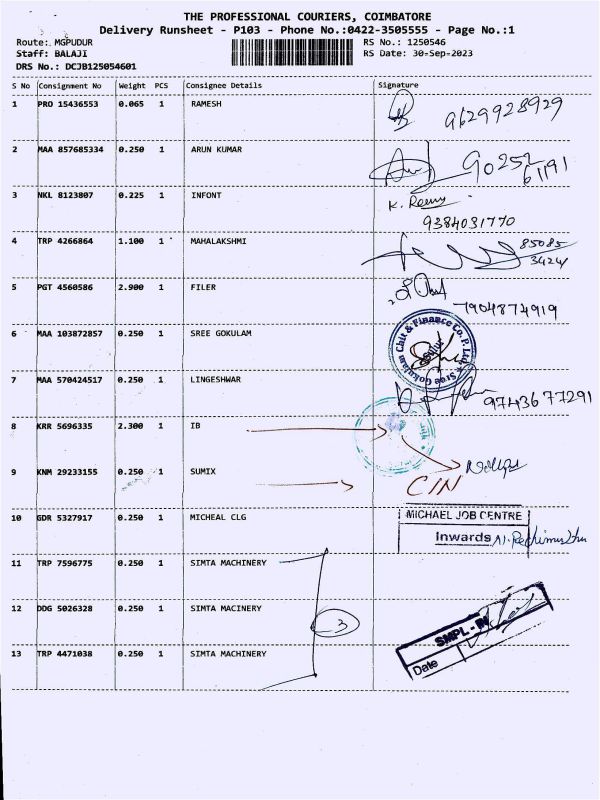 THE PROFESSIONAL COURIERS, COIMBATORE
Delivery Runsheet - P103 - Phone No.:0422-3505555 - Page No.:1
Route: MGPUDUR RS No.: 1250546
Staff: BALAJI RS Date: 30-Sep-2023
DRS No.: DCJB125054601
S No Consignment No Weight PCS Consignee Details Signature
1 PRO 15436553 0.065 1 RAMESH 9629928929
2 MAA 857685334 0.250 1 ARUN KUMAR 90252
61191
3 NKL 8123807 0.225 1 INFONT K.
9384031770
4 TRP 4266864 1.100 1 MAHALAKSHMI 85085
34241
5 PGT 4560586 2.900 1 FILER
7904874919
6 MAA 103872857 0.250 1 SREE GOKULAM Sree Gokulam Chit & Finance Co. P. Ltd.
7 MAA 570424517 0.250 1 LINGESHWAR 9743677291
8 KRR 5696335 2.300 1 IB
9 KNM 29233155 0.250 1 SUMIX C/N
10 GDR 5327917 0.250 1 MICHEAL CLG MICHAEL JOB CENTRE
Inwards
11 TRP 7596775 0.250 1 SIMTA MACHINERY
12 DDG 5026328 0.250 1 SIMTA MACINERY 3
SMPL - IN
13 TRP 4471038 0.250 1 SIMTA MACHINERY Date